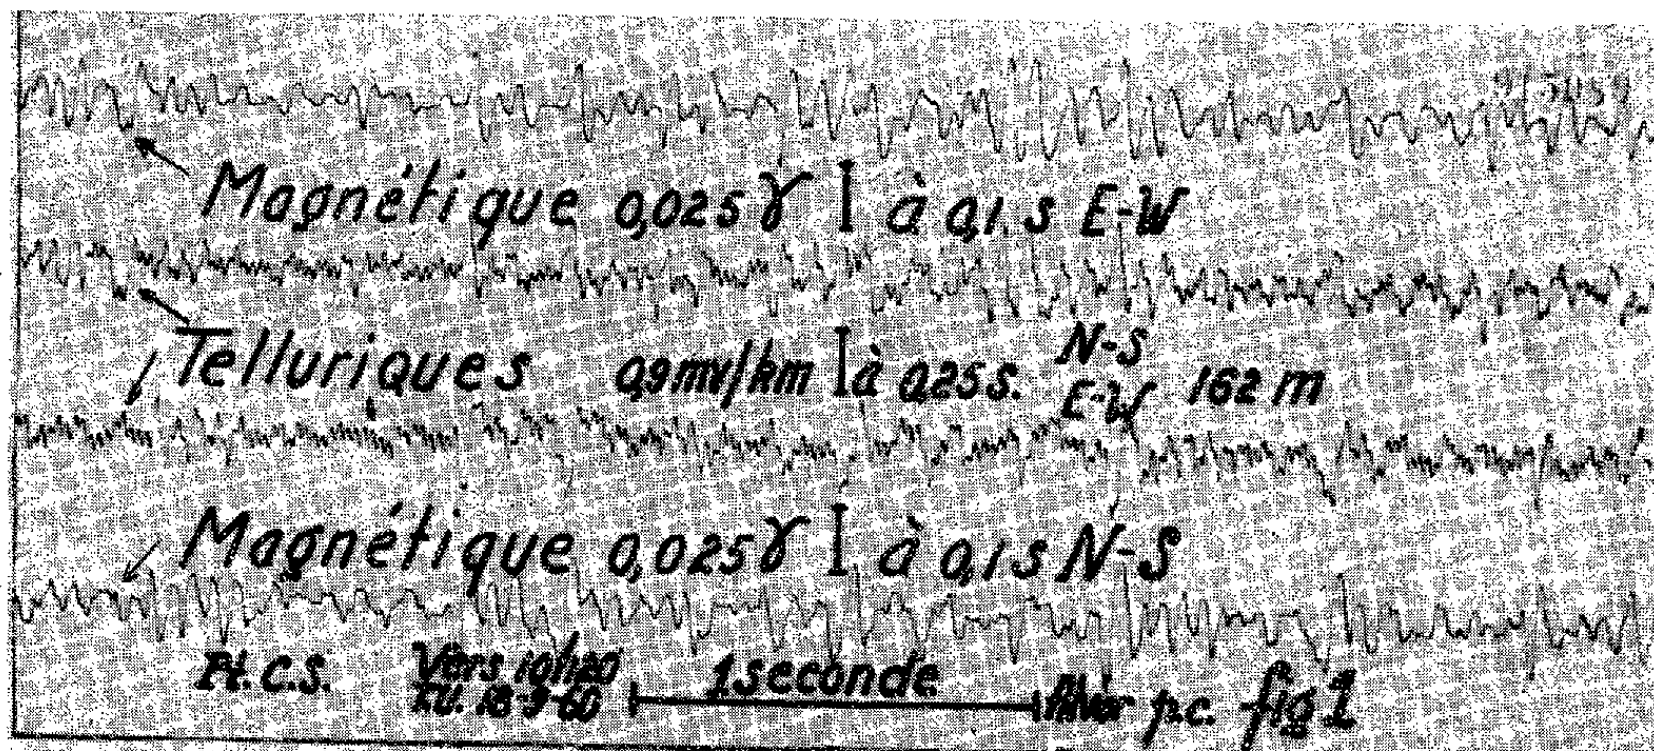 Magnétique 0,025 γ I à 0,1 s E-W
Telluriques 0,9 mv/km I à 0,25 s. N-S E-W 162 m
Magnétique 0,025 γ I à 0,1 s N-S
Pt. C.S. Vers 10h20 1 seconde
T.U. 18-9-60 p.c. fig 1